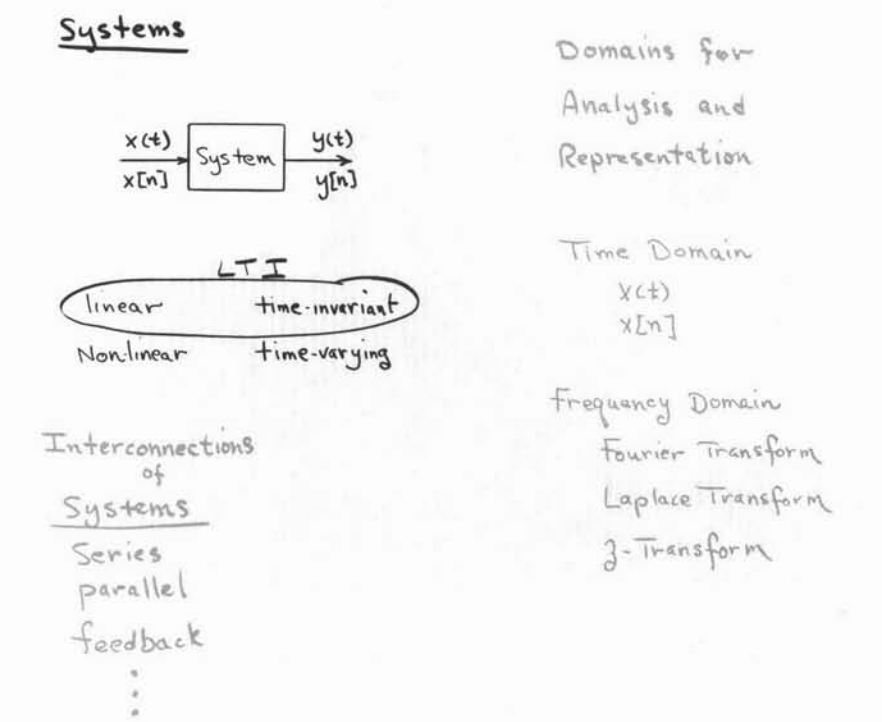 Systems
x(t)
x[n]
System
y(t)
y[n]
LTI
linear time-invariant
Non-linear time-varying
Interconnections
of
Systems
Series
parallel
feedback
Domains for
Analysis and
Representation
Time Domain
x(t)
x[n]
Frequency Domain
Fourier Transform
Laplace Transform
z-Transform